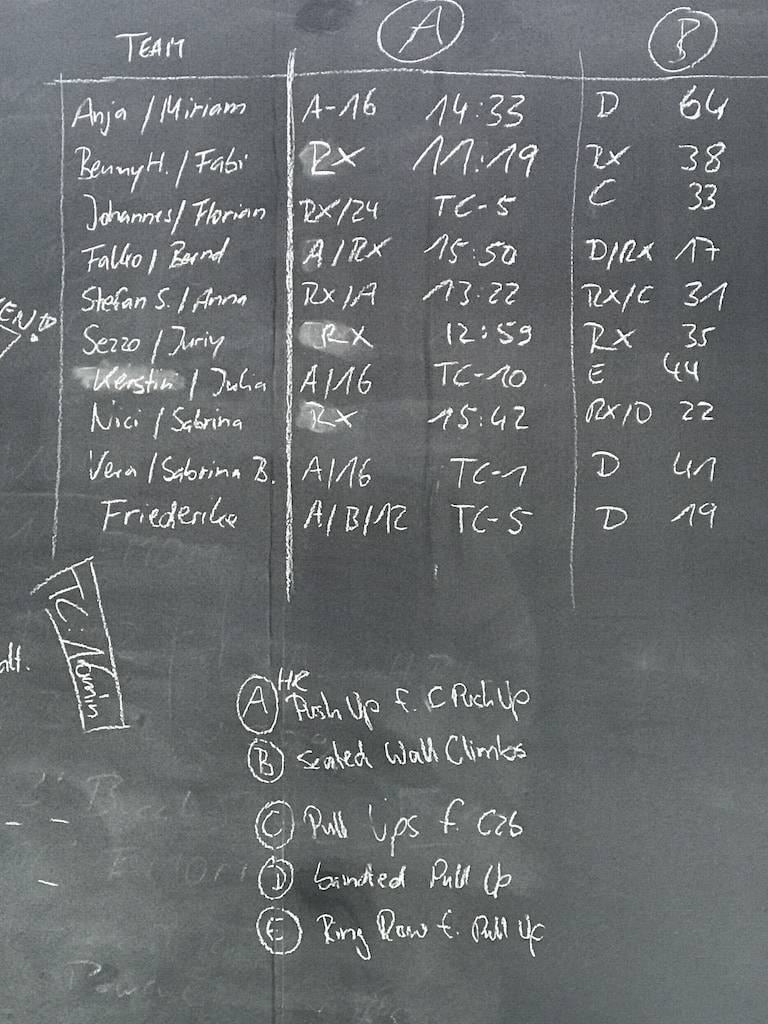 TEAM A B
Anja / Miriam A-16 14:33 D 64
Benny H. / Fabi RX 11:19 RX 38
Johannes / Florian RX/24 TC-5 C 33
Falko / Bernd A/RX 15:50 D/RX 17
Stefan S. / Anna RX/A 13:22 RX/C 31
Sezzo / Juriy RX 12:59 RX 35
Kerstin / Julia A/16 TC-10 E 44
Nici / Sabrina RX 15:42 RX/D 22
Vera / Sabrina B. A/16 TC-1 D 41
Friederike A/B/12 TC-5 D 19
TC: 16min
A HR Push Up f. C Push Up
B Scaled Wall Climbs
C Pull Ups f. C2B
D banded Pull Up
E Ring Row f. Pull Up